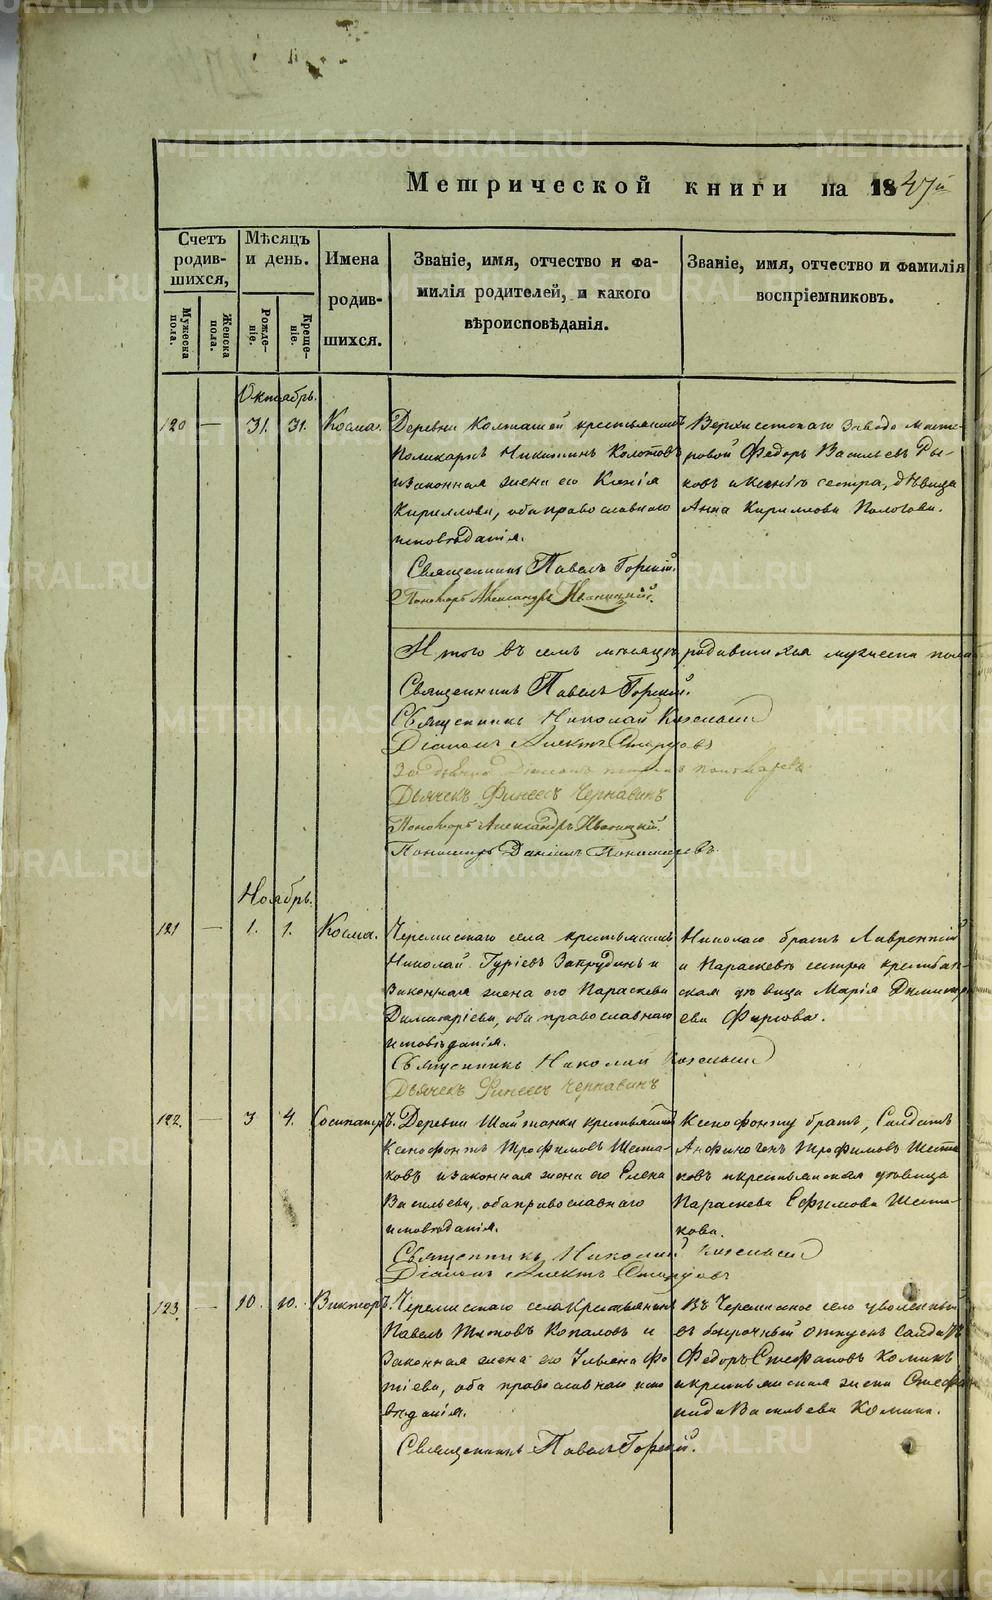 Метрической книги на 1847й
Счетъ родив-шихся,
Мѣсяцъ и день.
Имена родив-шихся.
Званіе, имя, отчество и фа-
милія родителей, и какого
вѣроисповѣданія.
Званіе, имя, отчество и фамилія
воспріемниковъ.
Мужеска пола.
Женска пола.
Рожде-ніе.
Креще-ніе.
Октябрь.
120 — 31. 31. Косма.
Деревни крестьянинъ
Поликарпъ Никитинъ Колотовъ
и законная жена его Ксенія
Кириллова, оба православнаго
исповѣданія.
Священникъ Павелъ Горскій.
Пономарь Александръ
Верхисетскаго завода масте-
ровой Федоръ Васильевъ Ры-
ковъ и Ксеніи сестра, дѣвица
Анна Кириллова
Итого въ семъ мѣсяцѣ родившихся мужеска пола
Священникъ Павелъ Горскій.
Священникъ Николай
Діаконъ
Дьячекъ Финеесъ Чернавинъ
Пономарь Александръ
Пономарь Даніилъ Пономаревъ
Ноябрь.
121 — 1. 1. Косма.
Черемисскаго села крестьянинъ
Николай Гуріевъ Запрудинъ и
законная жена его Параскева
Димитріева, оба православнаго
исповѣданія.
Священникъ Николай
Дьячекъ Финеесъ Чернавинъ
Николаю братъ Лаврентій
и Параскевѣ сестра крестьян-
ская дѣвица Марія Димитрі-
ева Фирсова.
122. — 3 4. Сосипатръ.
Деревни Шайтанки крестьянинъ
Ксенофонтъ Трофимовъ Шеста-
ковъ и законная жена его Елена
Васильева, оба православнаго
исповѣданія.
Священникъ Николай
Діаконъ
Ксенофонту братъ, Солдатъ
Анфиногенъ Трофимовъ Шеста-
ковъ и крестьянская дѣвица
Параскева Ефимова Шеста-
кова.
123. — 10. 10. Викторъ.
Черемисскаго села крестьянинъ
Павелъ Титовъ Копаловъ и
законная жена его Ульяна Фо-
тіева, оба православнаго испо-
вѣданія.
Священникъ Павелъ Горскій.
Въ Черемисское село уволенный
въ безсрочный отпускъ солдатъ
Федоръ Стефановъ Коминъ
и крестьянская жена Стефа-
нида Васильева Комина.
METRIKI.GASO-URAL.RU